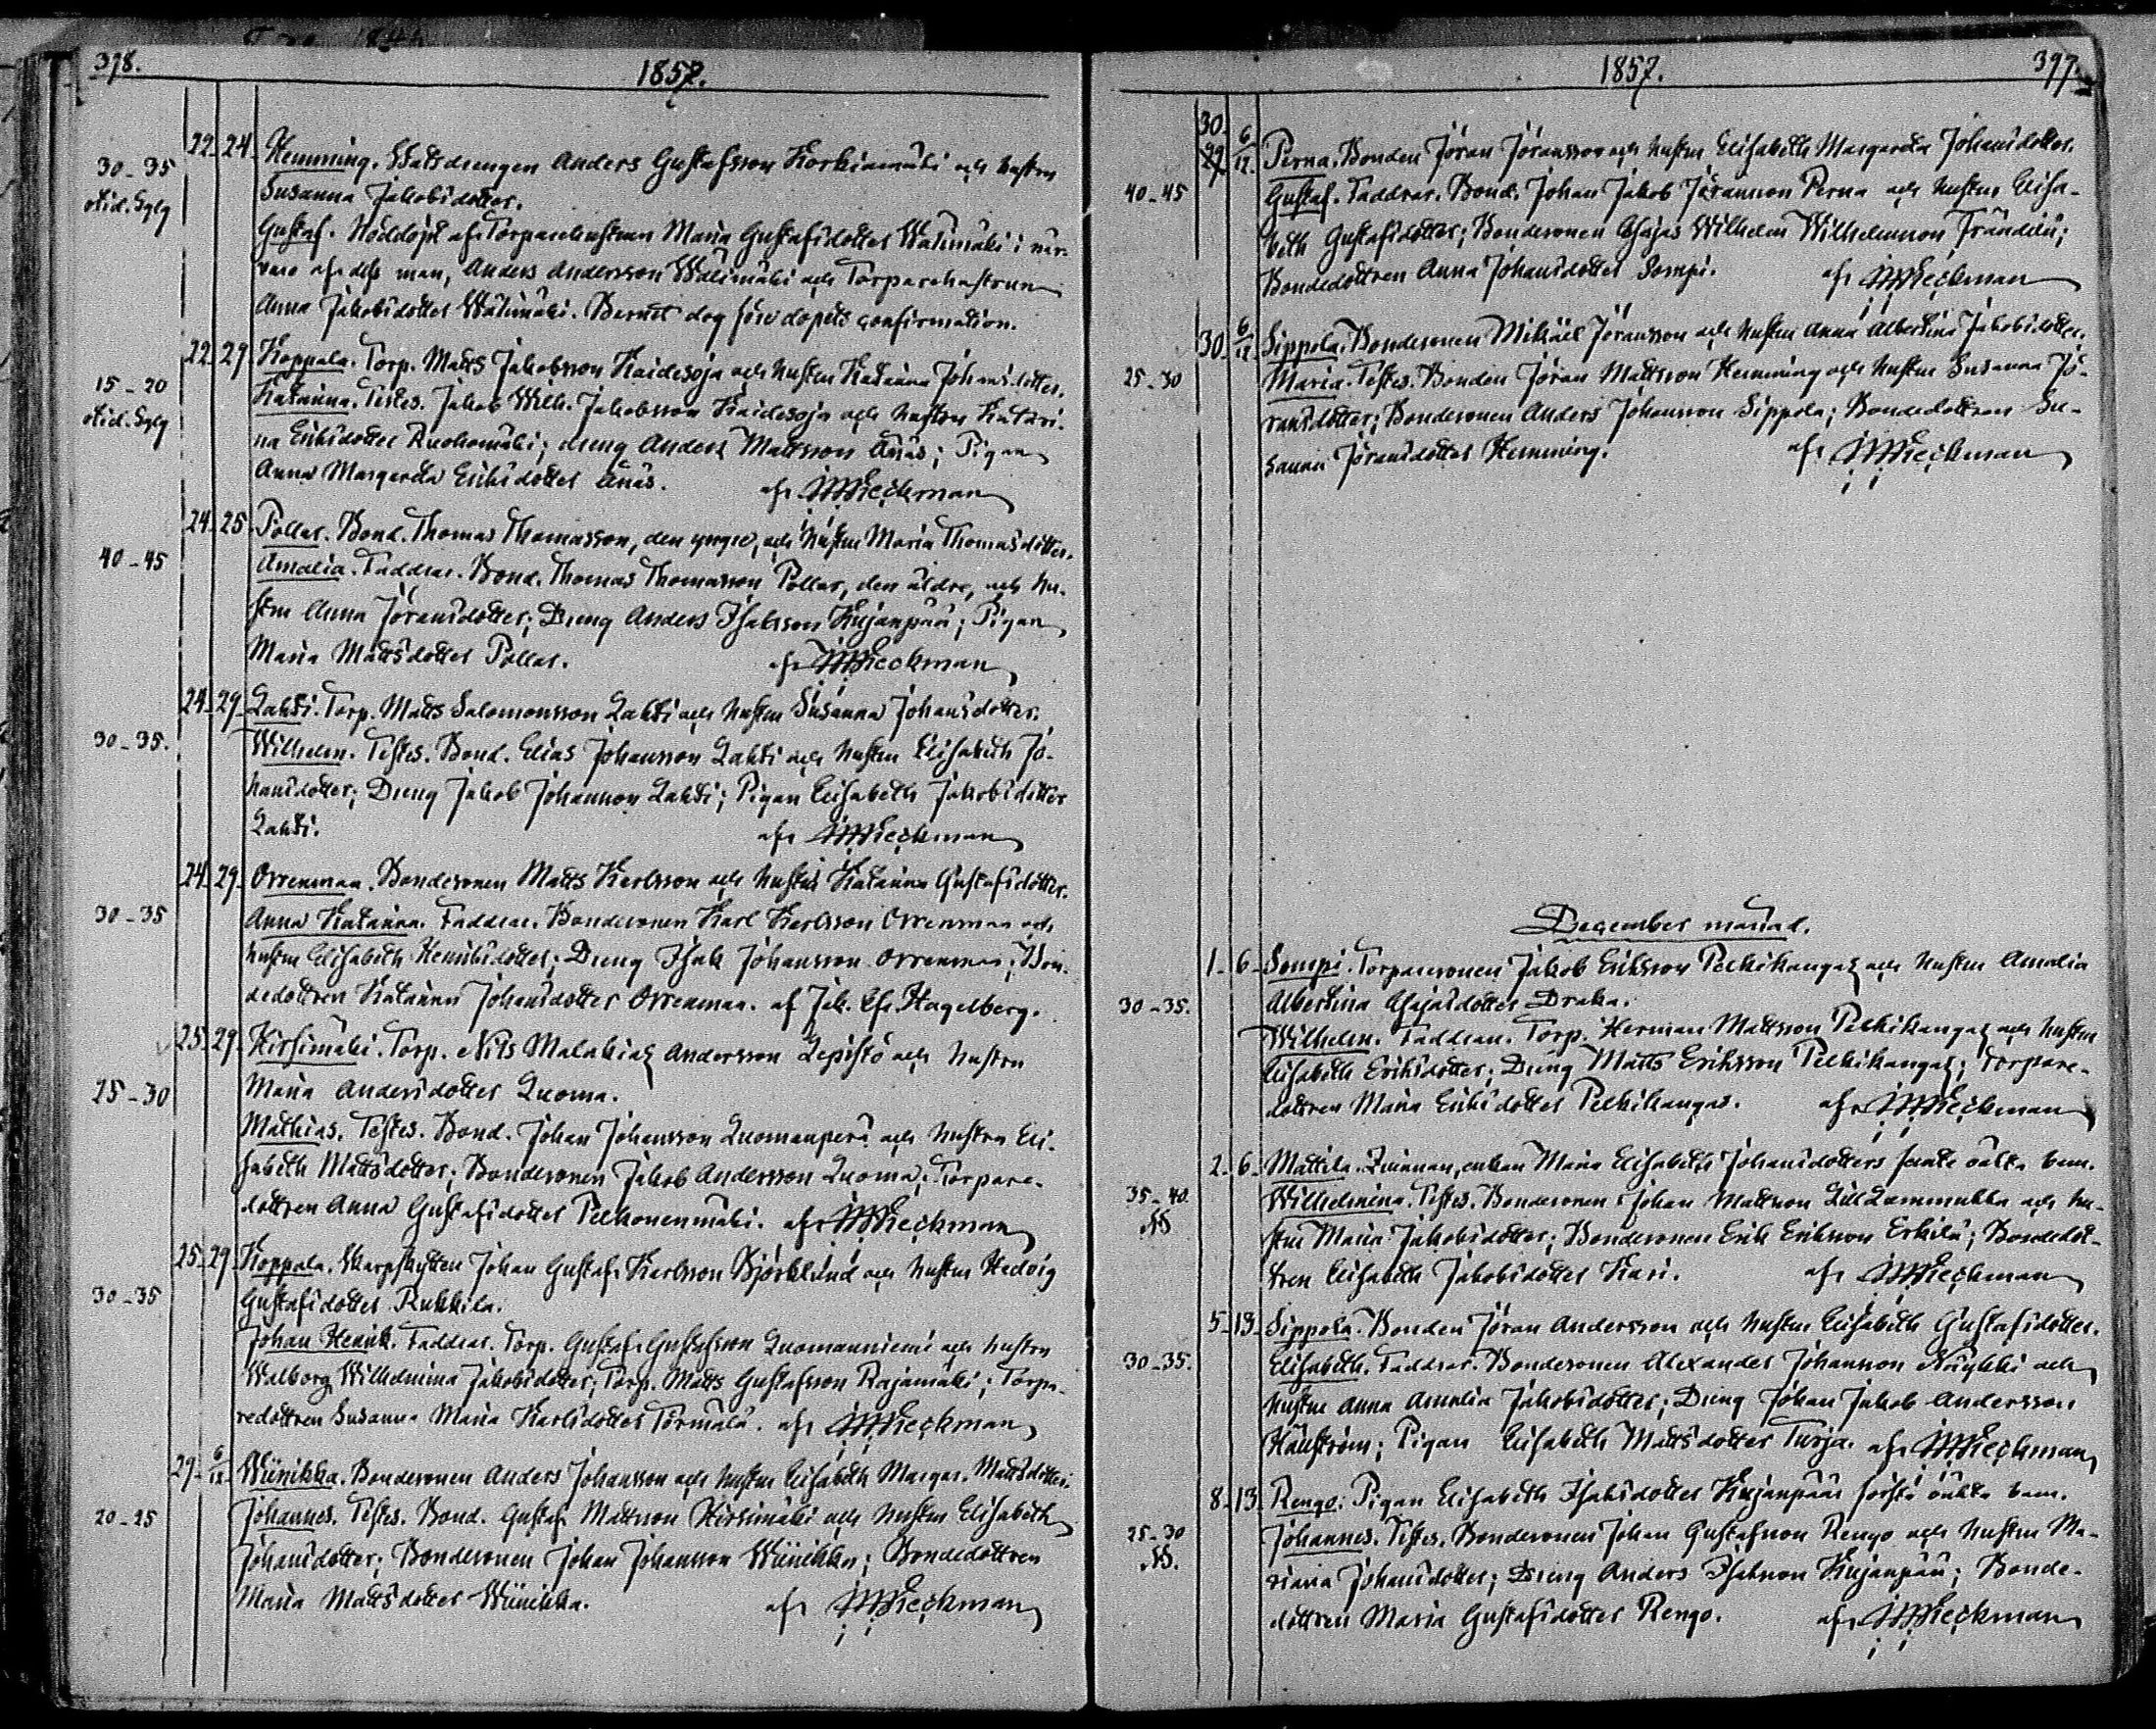 398.
1857.
22. 24. Hemming. Wattsdrengen Anders Gustafsson Korkiamäki och hustru
30-35 Susanna Jakobsdotter.
Gustaf. Nöddöpt af Torparehustrun Maria Gustafsdotter Wälimäki i när-
varo af dess man, Anders Andersson Wälimäki och Torparehustrun
Anna Jakobsdotter Wälimäki. Barnet dog före dopets confirmation.
22. 29. Koppala. Torp. Matts Jakobsson Kaidesoja och hustru Katarina Johansdotter.
15-20 Katarina. Testes. Jakob Wilh. Jakobsson Kaidesoja och hustru Katari-
na Eriksdotter Ruohomäki; dreng Anders Mattsson Ånäs; Pigan
Anna Margareta Eriksdotter Ånäs. af
24. 25. Pollar. Bond. Thomas Thomasson, den yngre, och hustru Maria Thomasdotter.
40-45 Amalia. Faddrar. Bond. Thomas Thomasson Pollar, den äldre, och hu-
stru Anna Jöransdotter; Dreng Anders Isaksson Kujanpää; Pigan
Maria Mattsdotter Pollar. af
24. 29. Lahti. Torp. Matts Salomonsson Lahti och hustru Susanna Johansdotter.
30-35. Wilhelm. Testes. Bond. Elias Johansson Lahti och hustru Elisabeth Jo-
hansdotter; Dreng Jakob Johansson Lahti; Pigan Elisabeth Jakobsdotter
Lahti. af
24. 29. Orrenmaa. Bondesonen Matts Karlsson och hustru Katarina Gustafsdotter.
30-35 Anna Katarina. Faddrar. Bondesonen Karl Karlsson Orrenmaa och
hustru Elisabeth Henriksdotter; Dreng Isak Johansson Orrenmaa; Bon-
dedottren Katarina Johansdotter Orrenmaa. af Jak. Ef. Hagelberg.
25. 29. Kirsimäki. Torp. Nils Malakias Andersson Lepistö och hustru
25-30 Maria Andersdotter Luoma.
Mathias. Testes. Bond. Johan Johansson Luomanperä och hustru Eli-
sabeth Mattsdotter; Bondesonen Jakob Andersson Luoma; Torpare-
dottren Anna Gustafsdotter Pelkonenmäki. af
25. 29. Koppala. Skarpskytten Johan Gustaf Karlsson Björklund och hustru Hedvig
30-35 Gustafsdotter Rukkila.
Johan Henrik. Faddrar. Torp. Gustaf Gustafsson Luomanniemi och hustru
Walborg Wilhelmina Jakobsdotter; Torp. Matts Gustafsson Rajamäki; Torpa-
redottren Susanna Maria Karlsdotter Törmälä. af
29. 6/12. Wiinikka. Bondesonen Anders Johansson och hustru Elisabeth Margar. Mattsdotter.
20-25 Johannes. Testes. Bond. Gustaf Mattsson Kirsimäki och hustru Elisabeth
Johansdotter; Bondesonen Johan Johansson Wiinikka; Bondedottren
Maria Mattsdotter Wiinikka. af
1857.
397.
30.
29 6/12. Perna. Bonden Jöran Jöransson och hustru Elisabeth Margareta Johansdotter.
40-45 Gustaf. Faddrar. Bond. Johan Jakob Jöransson Perna och hustru Elisa-
beth Gustafsdotter; Bondesonen Esajas Wilhelm Wilhelmsson Frändilä;
Bondedottren Anna Johansdotter Sompi. af
30. 6/12. Sippola. Bondesonen Mikael Jöransson och hustru Anna Albertina Jakobsdotter.
25-30 Maria. Testes. Bonden Jöran Mattsson Hemming och hustru Susanna Jö-
ransdotter; Bondesonen Anders Johansson Sippola; Bondedottren Su-
sanna Jöransdotter Hemming. af
December månad.
1. 6. Sompi. Torparesonen Jakob Eriksson Pelkikangas och hustru Amalia
30-35. Albertina Esajasdotter Draka.
Wilhelm. Faddrar. Torp. Herman Mattsson Pelkikangas och hustru
Elisabeth Eriksdotter; Dreng Matts Eriksson Pelkikangas; Torpare-
dottren Maria Eriksdotter Pelkikangas. af
2. 6. Mattila. Qvinnan, enkan Maria Elisabeth Johansdotters oäkta barn.
35-40. Wilhelmina. Testes. Bondesonen Johan Mattsson Lill Lammukka och hu-
stru Maria Jakobsdotter; Bondesonen Erik Eriksson Erkilä; Bondedot-
tren Elisabeth Jakobsdotter Kari. af
5. 13. Sippola. Bonden Jöran Andersson och hustru Elisabeth Gustafsdotter.
30-35. Elisabeth. Faddrar. Bondesonen Alexander Johansson Näykki och
hustru Anna Amalia Jakobsdotter; Dreng Johan Jakob Andersson
Hällström; Pigan Elisabeth Mattsdotter Turja. af
8. 13. Rengo. Pigan Elisabeth Isaksdotter Kujanpääs första oäkta barn.
25-30 Johannes. Testes. Bondesonen Johan Gustafsson Rengo och hustru Ma-
riana Johansdotter; Dreng Anders Isaksson Kujanpää; Bonde-
dottren Maria Gustafsdotter Rengo. af